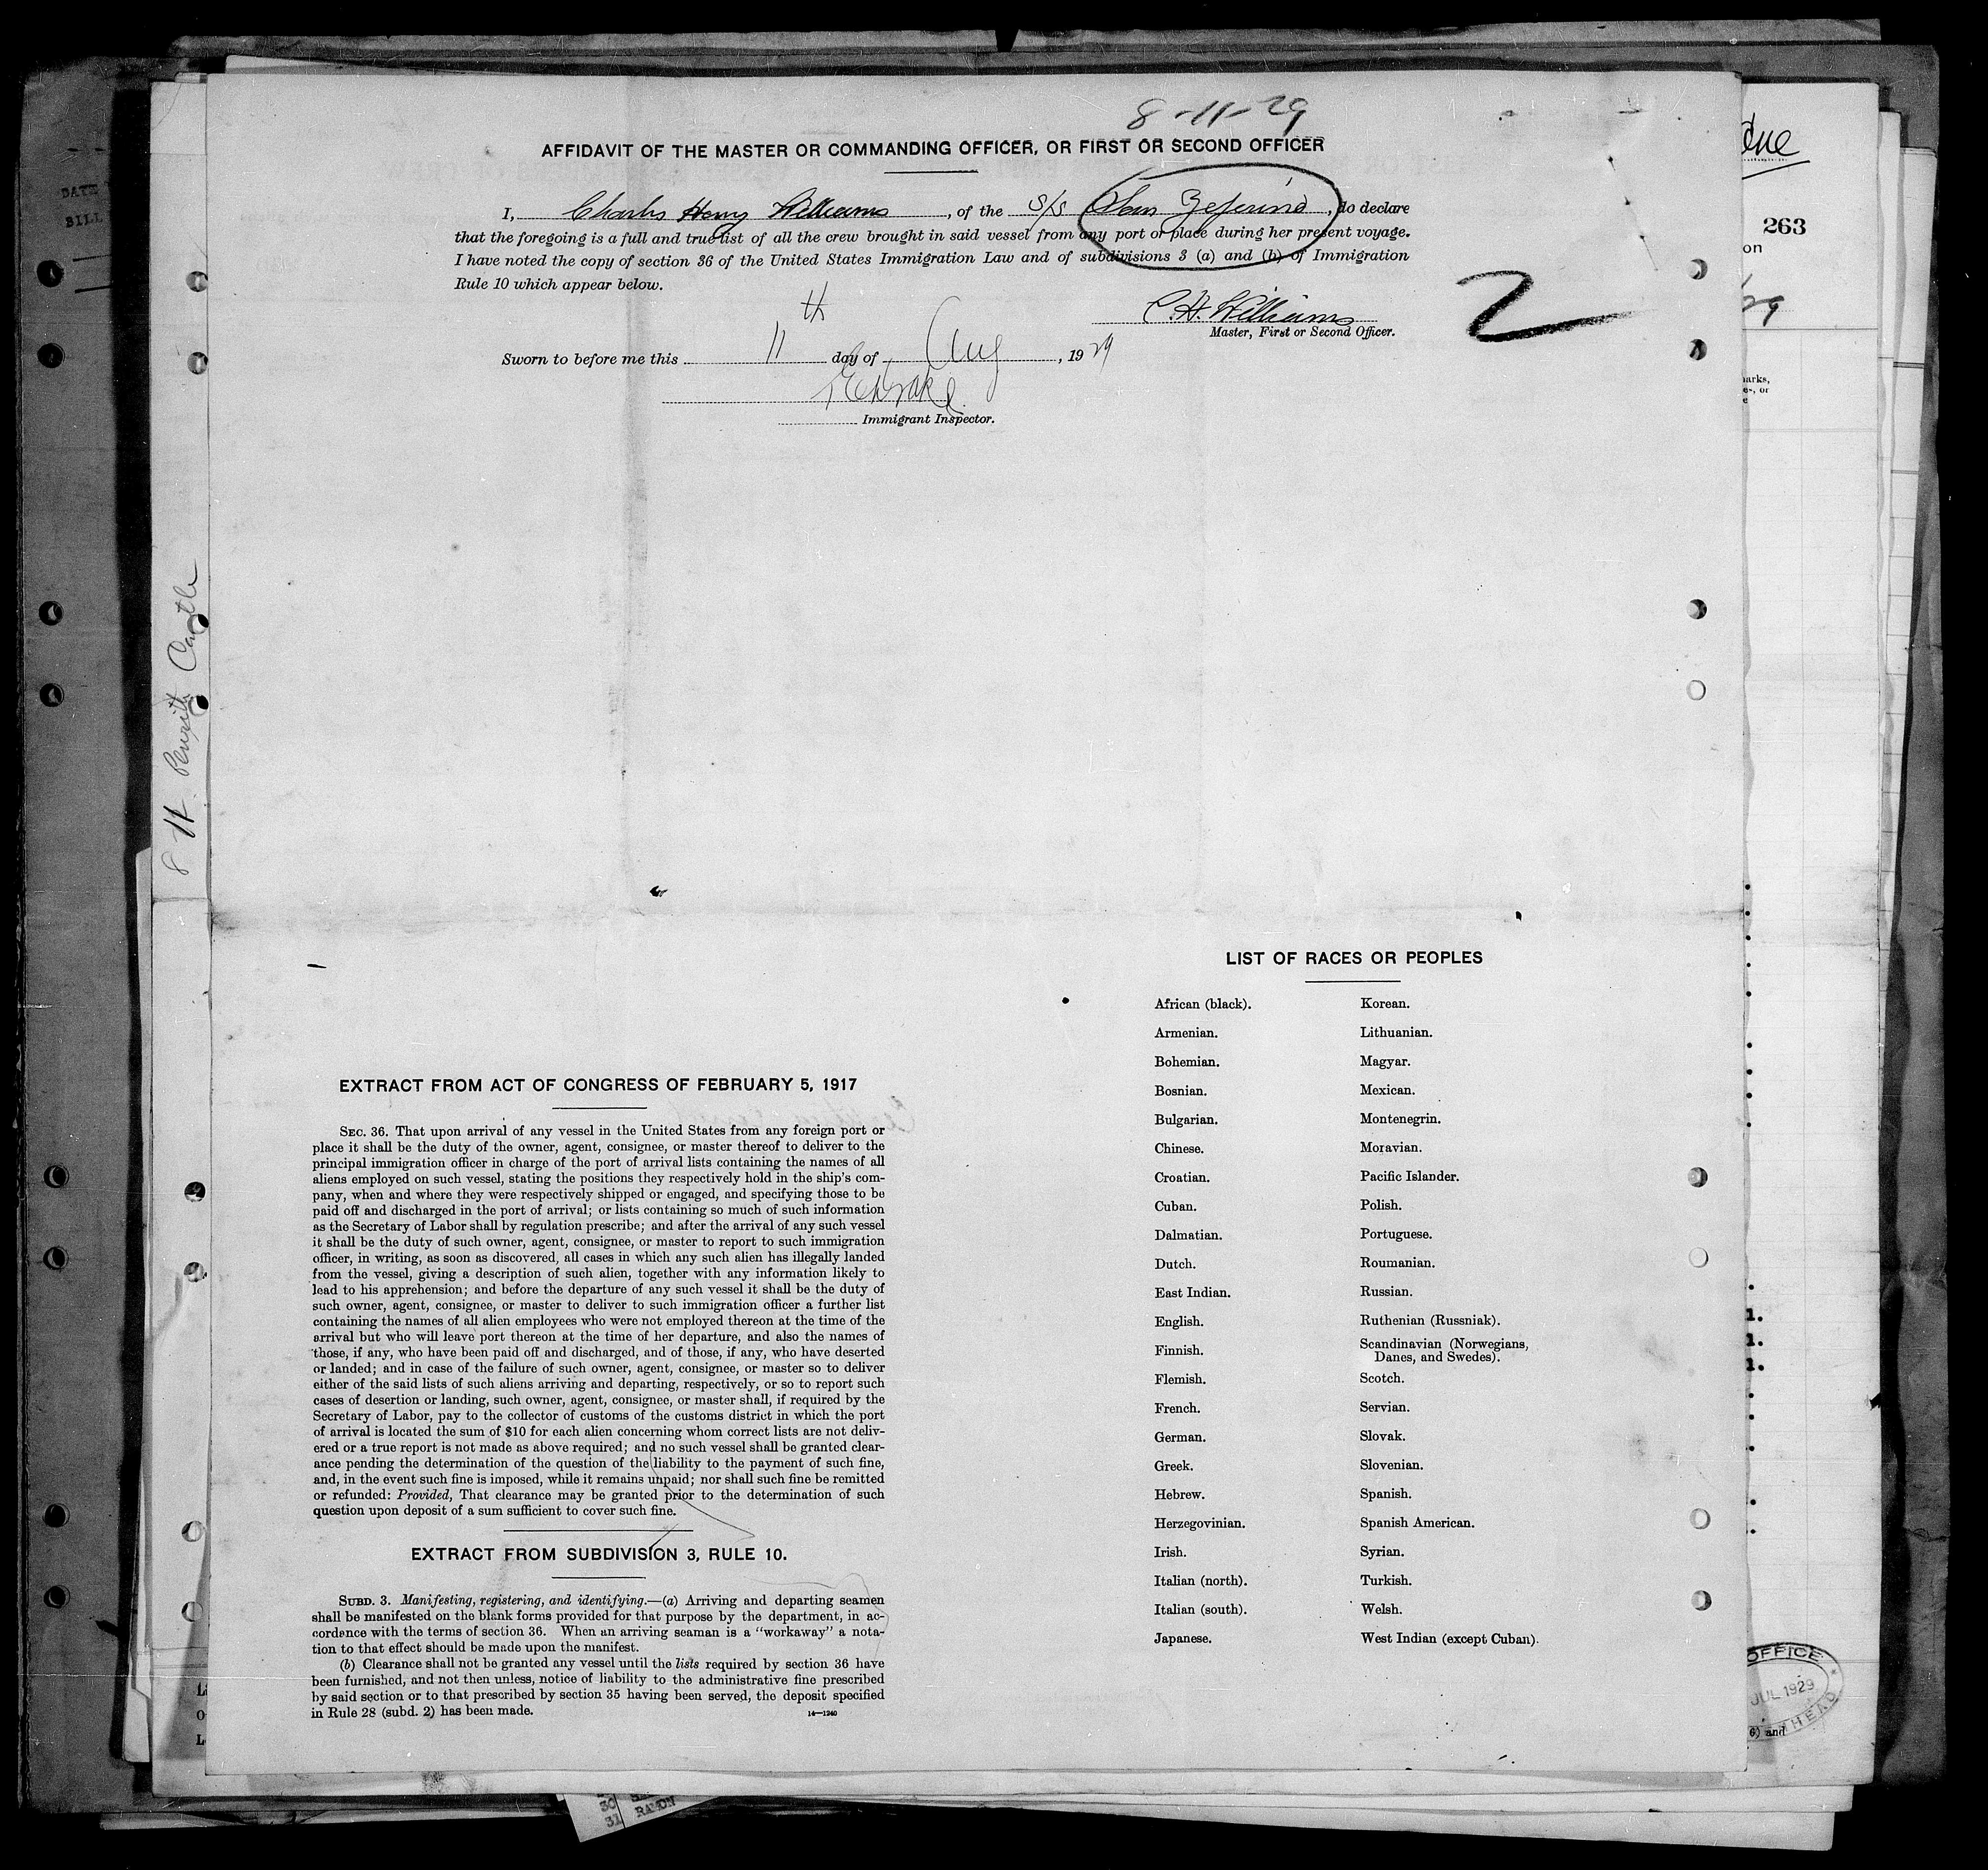 8-11-29
AFFIDAVIT OF THE MASTER OR COMMANDING OFFICER, OR FIRST OR SECOND OFFICER
I, Charles Henry Williams, of the S/S San Zeferino, do declare
that the foregoing is a full and true list of all the crew brought in said vessel from any port or place during her present voyage.
I have noted the copy of section 36 of the United States Immigration Law and of subdivisions 3 (a) and (b) of Immigration
Rule 10 which appear below.
C. H. Williams
Master, First or Second Officer.
2
Sworn to before me this 11th day of Aug, 1929
Immigrant Inspector.
8-11 Penrith Castle
EXTRACT FROM ACT OF CONGRESS OF FEBRUARY 5, 1917
SEC. 36. That upon arrival of any vessel in the United States from any foreign port or
place it shall be the duty of the owner, agent, consignee, or master thereof to deliver to the
principal immigration officer in charge of the port of arrival lists containing the names of all
aliens employed on such vessel, stating the positions they respectively hold in the ship's com-
pany, when and where they were respectively shipped or engaged, and specifying those to be
paid off and discharged in the port of arrival; or lists containing so much of such information
as the Secretary of Labor shall by regulation prescribe; and after the arrival of any such vessel
it shall be the duty of such owner, agent, consignee, or master to report to such immigration
officer, in writing, as soon as discovered, all cases in which any such alien has illegally landed
from the vessel, giving a description of such alien, together with any information likely to
lead to his apprehension; and before the departure of any such vessel it shall be the duty of
such owner, agent, consignee, or master to deliver to such immigration officer a further list
containing the names of all alien employees who were not employed thereon at the time of the
arrival but who will leave port thereon at the time of her departure, and also the names of
those, if any, who have been paid off and discharged, and of those, if any, who have deserted
or landed; and in case of the failure of such owner, agent, consignee, or master so to deliver
either of the said lists of such aliens arriving and departing, respectively, or so to report such
cases of desertion or landing, such owner, agent, consignee, or master shall, if required by the
Secretary of Labor, pay to the collector of customs of the customs district in which the port
of arrival is located the sum of $10 for each alien concerning whom correct lists are not deliv-
ered or a true report is not made as above required; and no such vessel shall be granted clear-
ance pending the determination of the question of the liability to the payment of such fine,
and, in the event such fine is imposed, while it remains unpaid; nor shall such fine be remitted
or refunded: Provided, That clearance may be granted prior to the determination of such
question upon deposit of a sum sufficient to cover such fine.
EXTRACT FROM SUBDIVISION 3, RULE 10.
SUBD. 3. Manifesting, registering, and identifying.—(a) Arriving and departing seamen
shall be manifested on the blank forms provided for that purpose by the department, in ac-
cordance with the terms of section 36. When an arriving seaman is a "workaway" a nota-
tion to that effect should be made upon the manifest.
(b) Clearance shall not be granted any vessel until the lists required by section 36 have
been furnished, and not then unless, notice of liability to the administrative fine prescribed
by said section or to that prescribed by section 35 having been served, the deposit specified
in Rule 28 (subd. 2) has been made.
14—1240
LIST OF RACES OR PEOPLES
African (black).
Armenian.
Bohemian.
Bosnian.
Bulgarian.
Chinese.
Croatian.
Cuban.
Dalmatian.
Dutch.
East Indian.
English.
Finnish.
Flemish.
French.
German.
Greek.
Hebrew.
Herzegovinian.
Irish.
Italian (north).
Italian (south).
Japanese.
Korean.
Lithuanian.
Magyar.
Mexican.
Montenegrin.
Moravian.
Pacific Islander.
Polish.
Portuguese.
Roumanian.
Russian.
Ruthenian (Russniak).
Scandinavian (Norwegians,
Danes, and Swedes).
Scotch.
Servian.
Slovak.
Slovenian.
Spanish.
Spanish American.
Syrian.
Turkish.
Welsh.
West Indian (except Cuban).
DATE
BILL
263
OFFICE
JUL 1929
6) and
30
31 RAMON